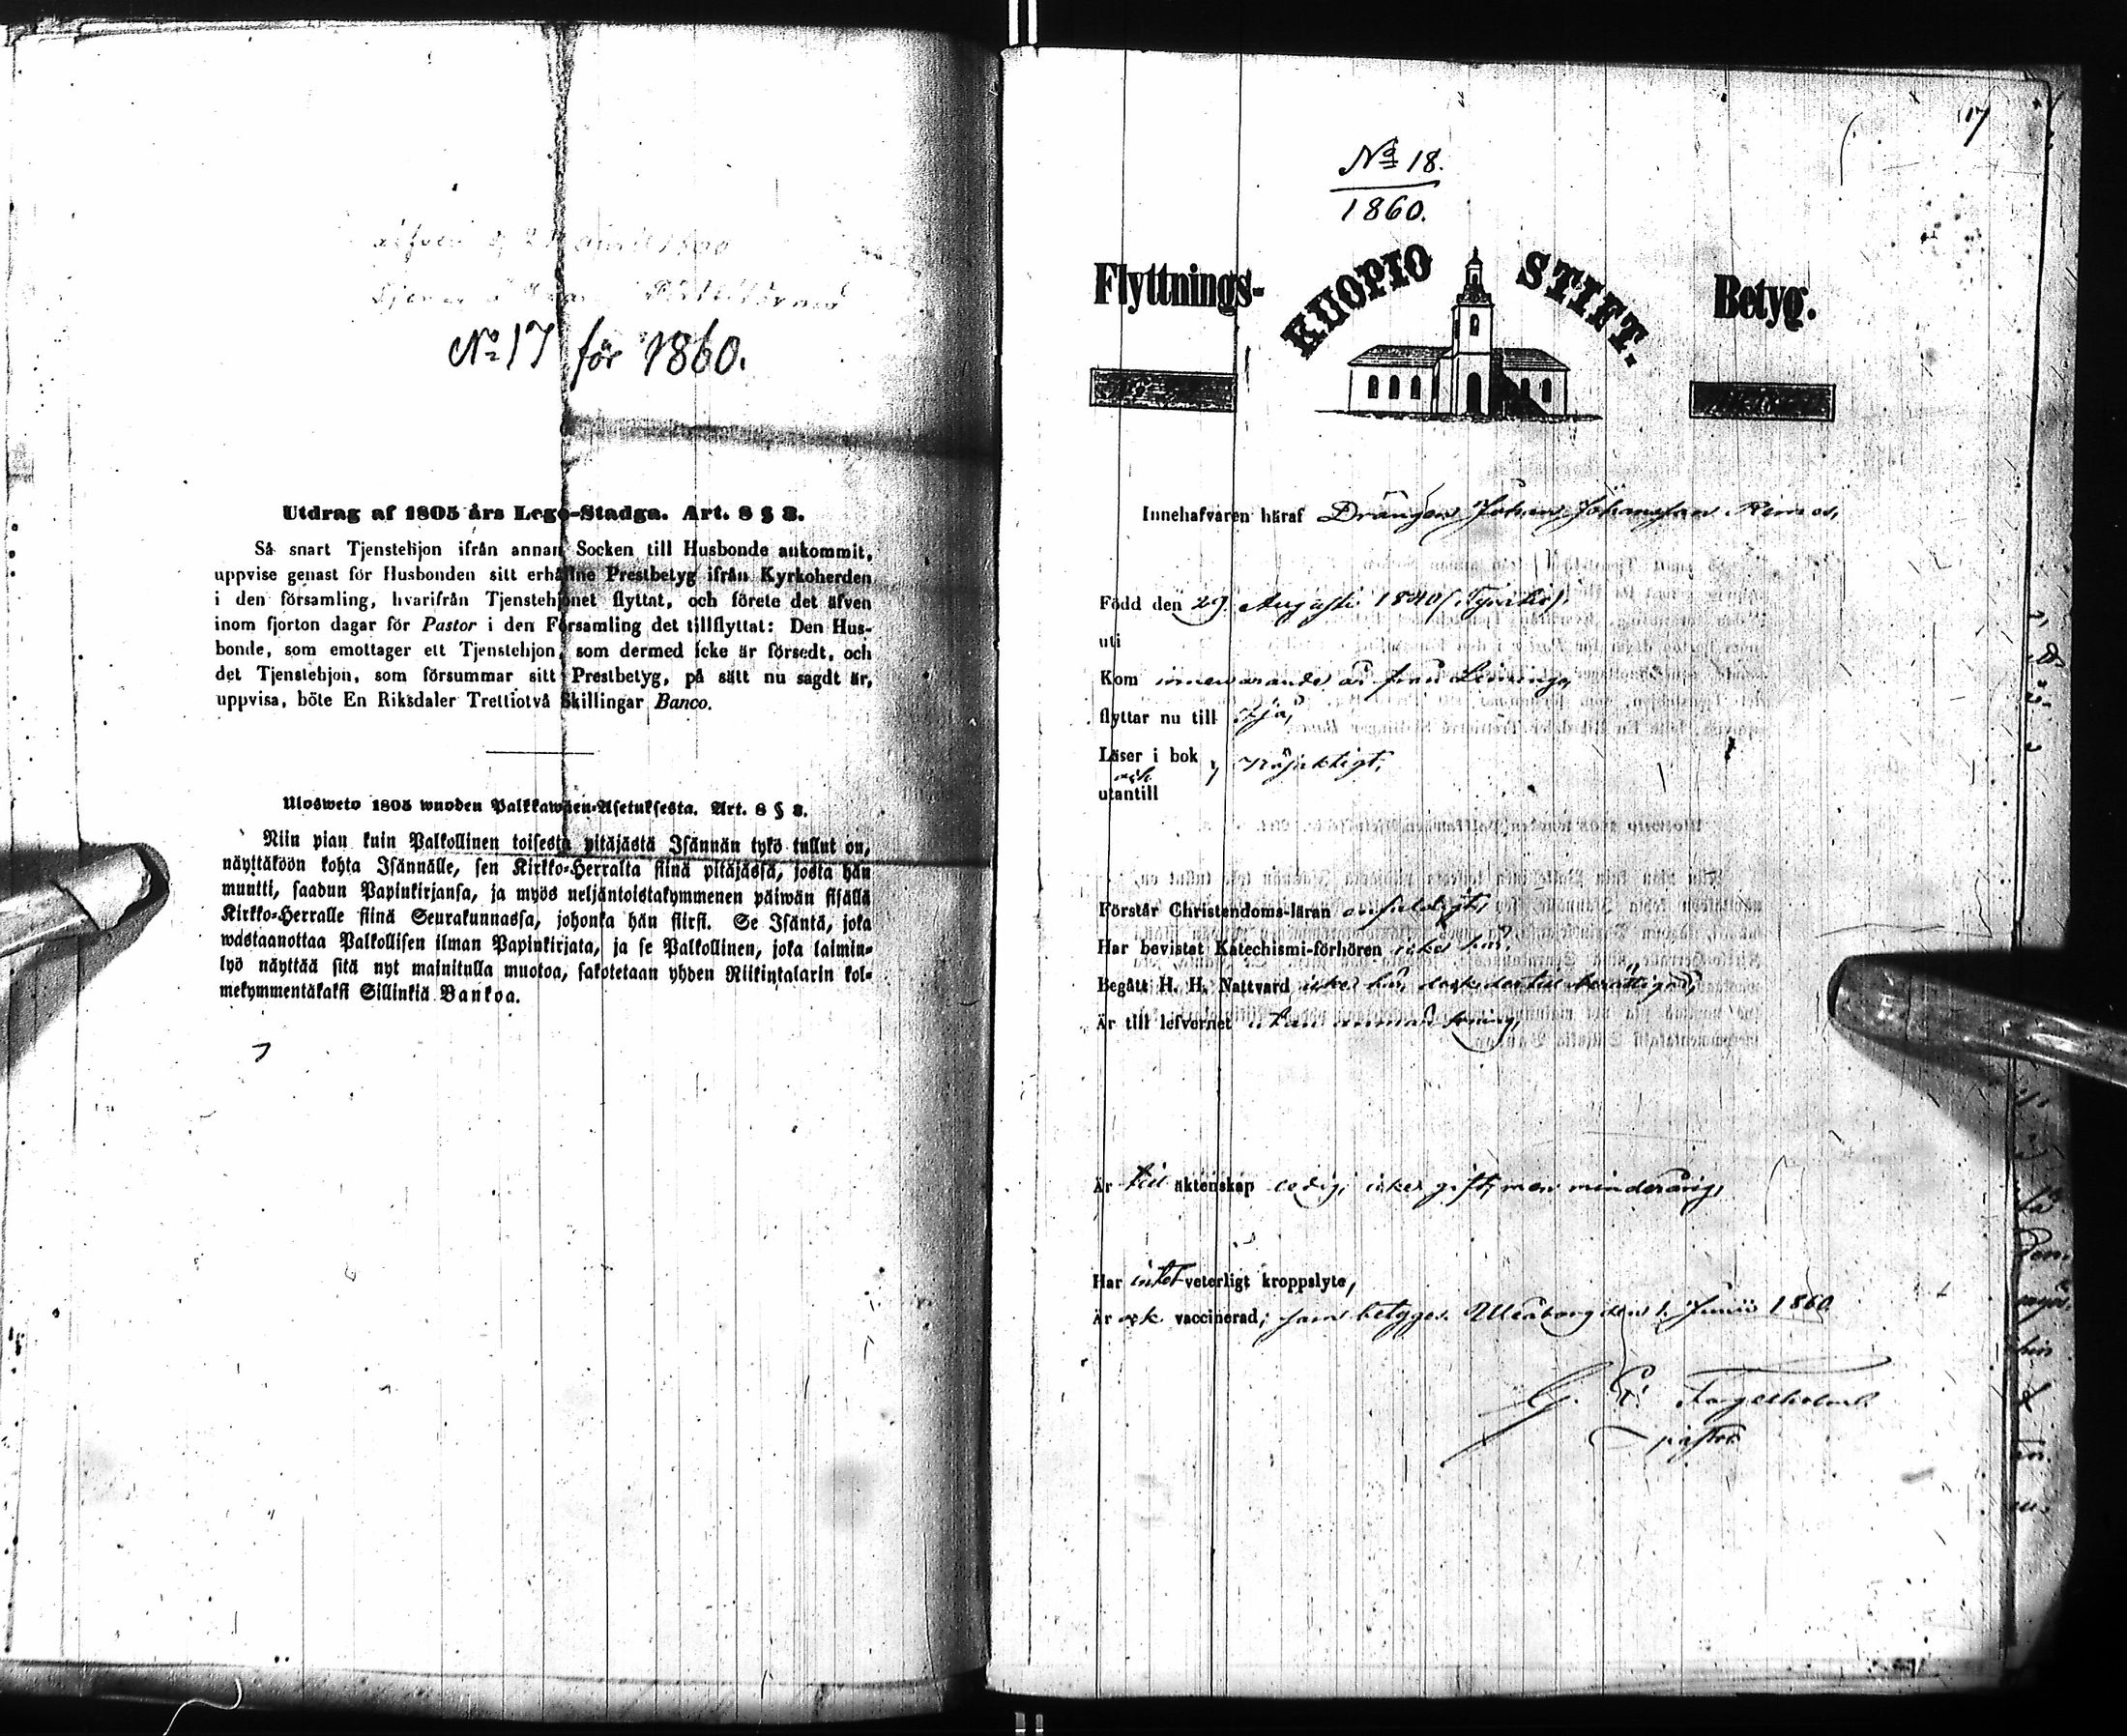 No 17 för 1860.
Utdrag af 1805 års Lego-Stadga. Art. 8 § 8.
Så snart Tjenstehjon ifrån annan Socken till Husbonde ankommit,
uppvise genast för Husbonden sitt erhållne Prestbetyg ifrån Kyrkoherden
i den församling, hvarifrån Tjenstehjonet flyttat, och förete det äfven
inom fjorton dagar för Pastor i den Församling det tillflyttat: Den Hus-
bonde, som emottager ett Tjenstehjon, som dermed icke är försedt, och
det Tjenstehjon, som försummar sitt Prestbetyg, på sätt nu sagdt är,
uppvisa, böte En Riksdaler Trettiotvå Skillingar Banco.
Ulosweto 1805 wuoden Palkkawäen-Asetuksesta. Art. 8 § 8.
Niin pian kuin Palkollinen toisesta pitäjästä Isännän tykö tullut on,
näyttäköön kohta Isännälle, sen Kirkko-Herralta siinä pitäjässä, josta hän
muutti, saadun Papinkirjansa, ja myös neljäntoistakymmenen päiwän sisällä
Kirkko-Herralle siinä Seurakunnassa, johonka hän siirsi. Se Isäntä, joka
wastaanottaa Palkollisen ilman Papinkirjata, ja se Palkollinen, joka laimin-
lyö näyttää sitä nyt mainitulla muotoa, sakotetaan yhden Riikintalarin kol-
mekymmentäkaksi Sillinkiä Bankoa.
17
No 18.
1860.
Flyttnings- KUOPIO STIFT. Betyg.
Innehafvaren häraf Drängen Johan Johansson
Född den 29 Augusti 1840
uti
Kom innevarande år från Liminga,
flyttar nu till
Läser i bok
och
utantill nöjaktigt,
Förstår Christendoms-läran enfaldigt,
Har bevistat Katechismi-förhören icke här,
Begått H. H. Nattvard icke här, dock dertill berättigad,
Är till lefvernet utan anmärkning,
Är till äktenskap ledig, icke gift, men minderårig,
Har intet veterligt kroppslyte,
Är ock vaccinerad; som betygges. Uleåborg den 1 Junii 1860
pastor